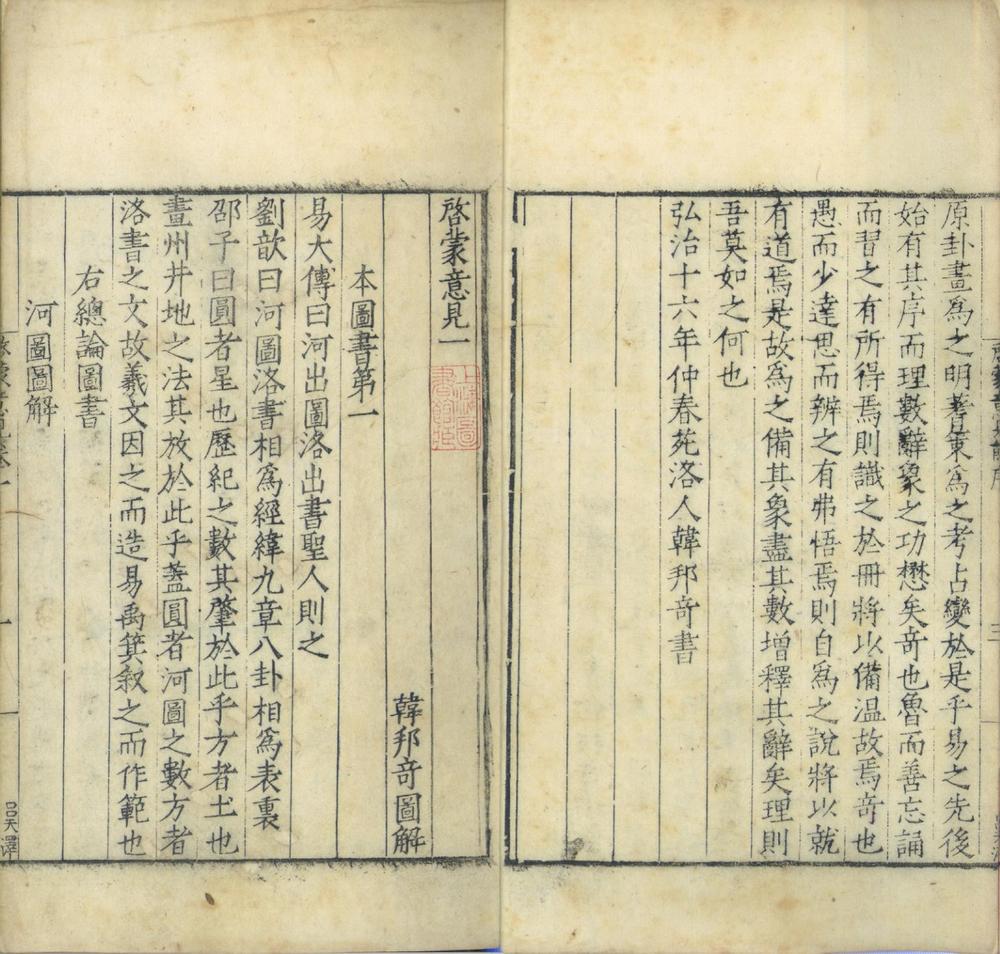 原卦畫爲之明蓍策爲之考占變於是乎易之先後
始有其序而理數辭象之功懋矣奇也魯而善忘誦
而習之有所得焉則識之於冊將以備温故焉奇也
愚而少達思而辨之有弗悟焉則自爲之說將以就
有道焉是故爲之備其象盡其數增釋其辭矣理則
吾莫如之何也
弘治十六年仲春苑洛人韓邦奇書
啓蒙意見一
韓邦奇圖解
本圖書第一
易大傳曰河出圖洛出書聖人則之
劉歆曰河圖洛書相爲經緯九章八卦相爲表裏
邵子曰圓者星也歷紀之數其肇於此乎方者土也
畫州井地之法其放於此乎蓋圓者河圖之數方者
洛書之文故羲文因之而造易禹箕叙之而作範也
右總論圖書
河圖圖解
吕天澤